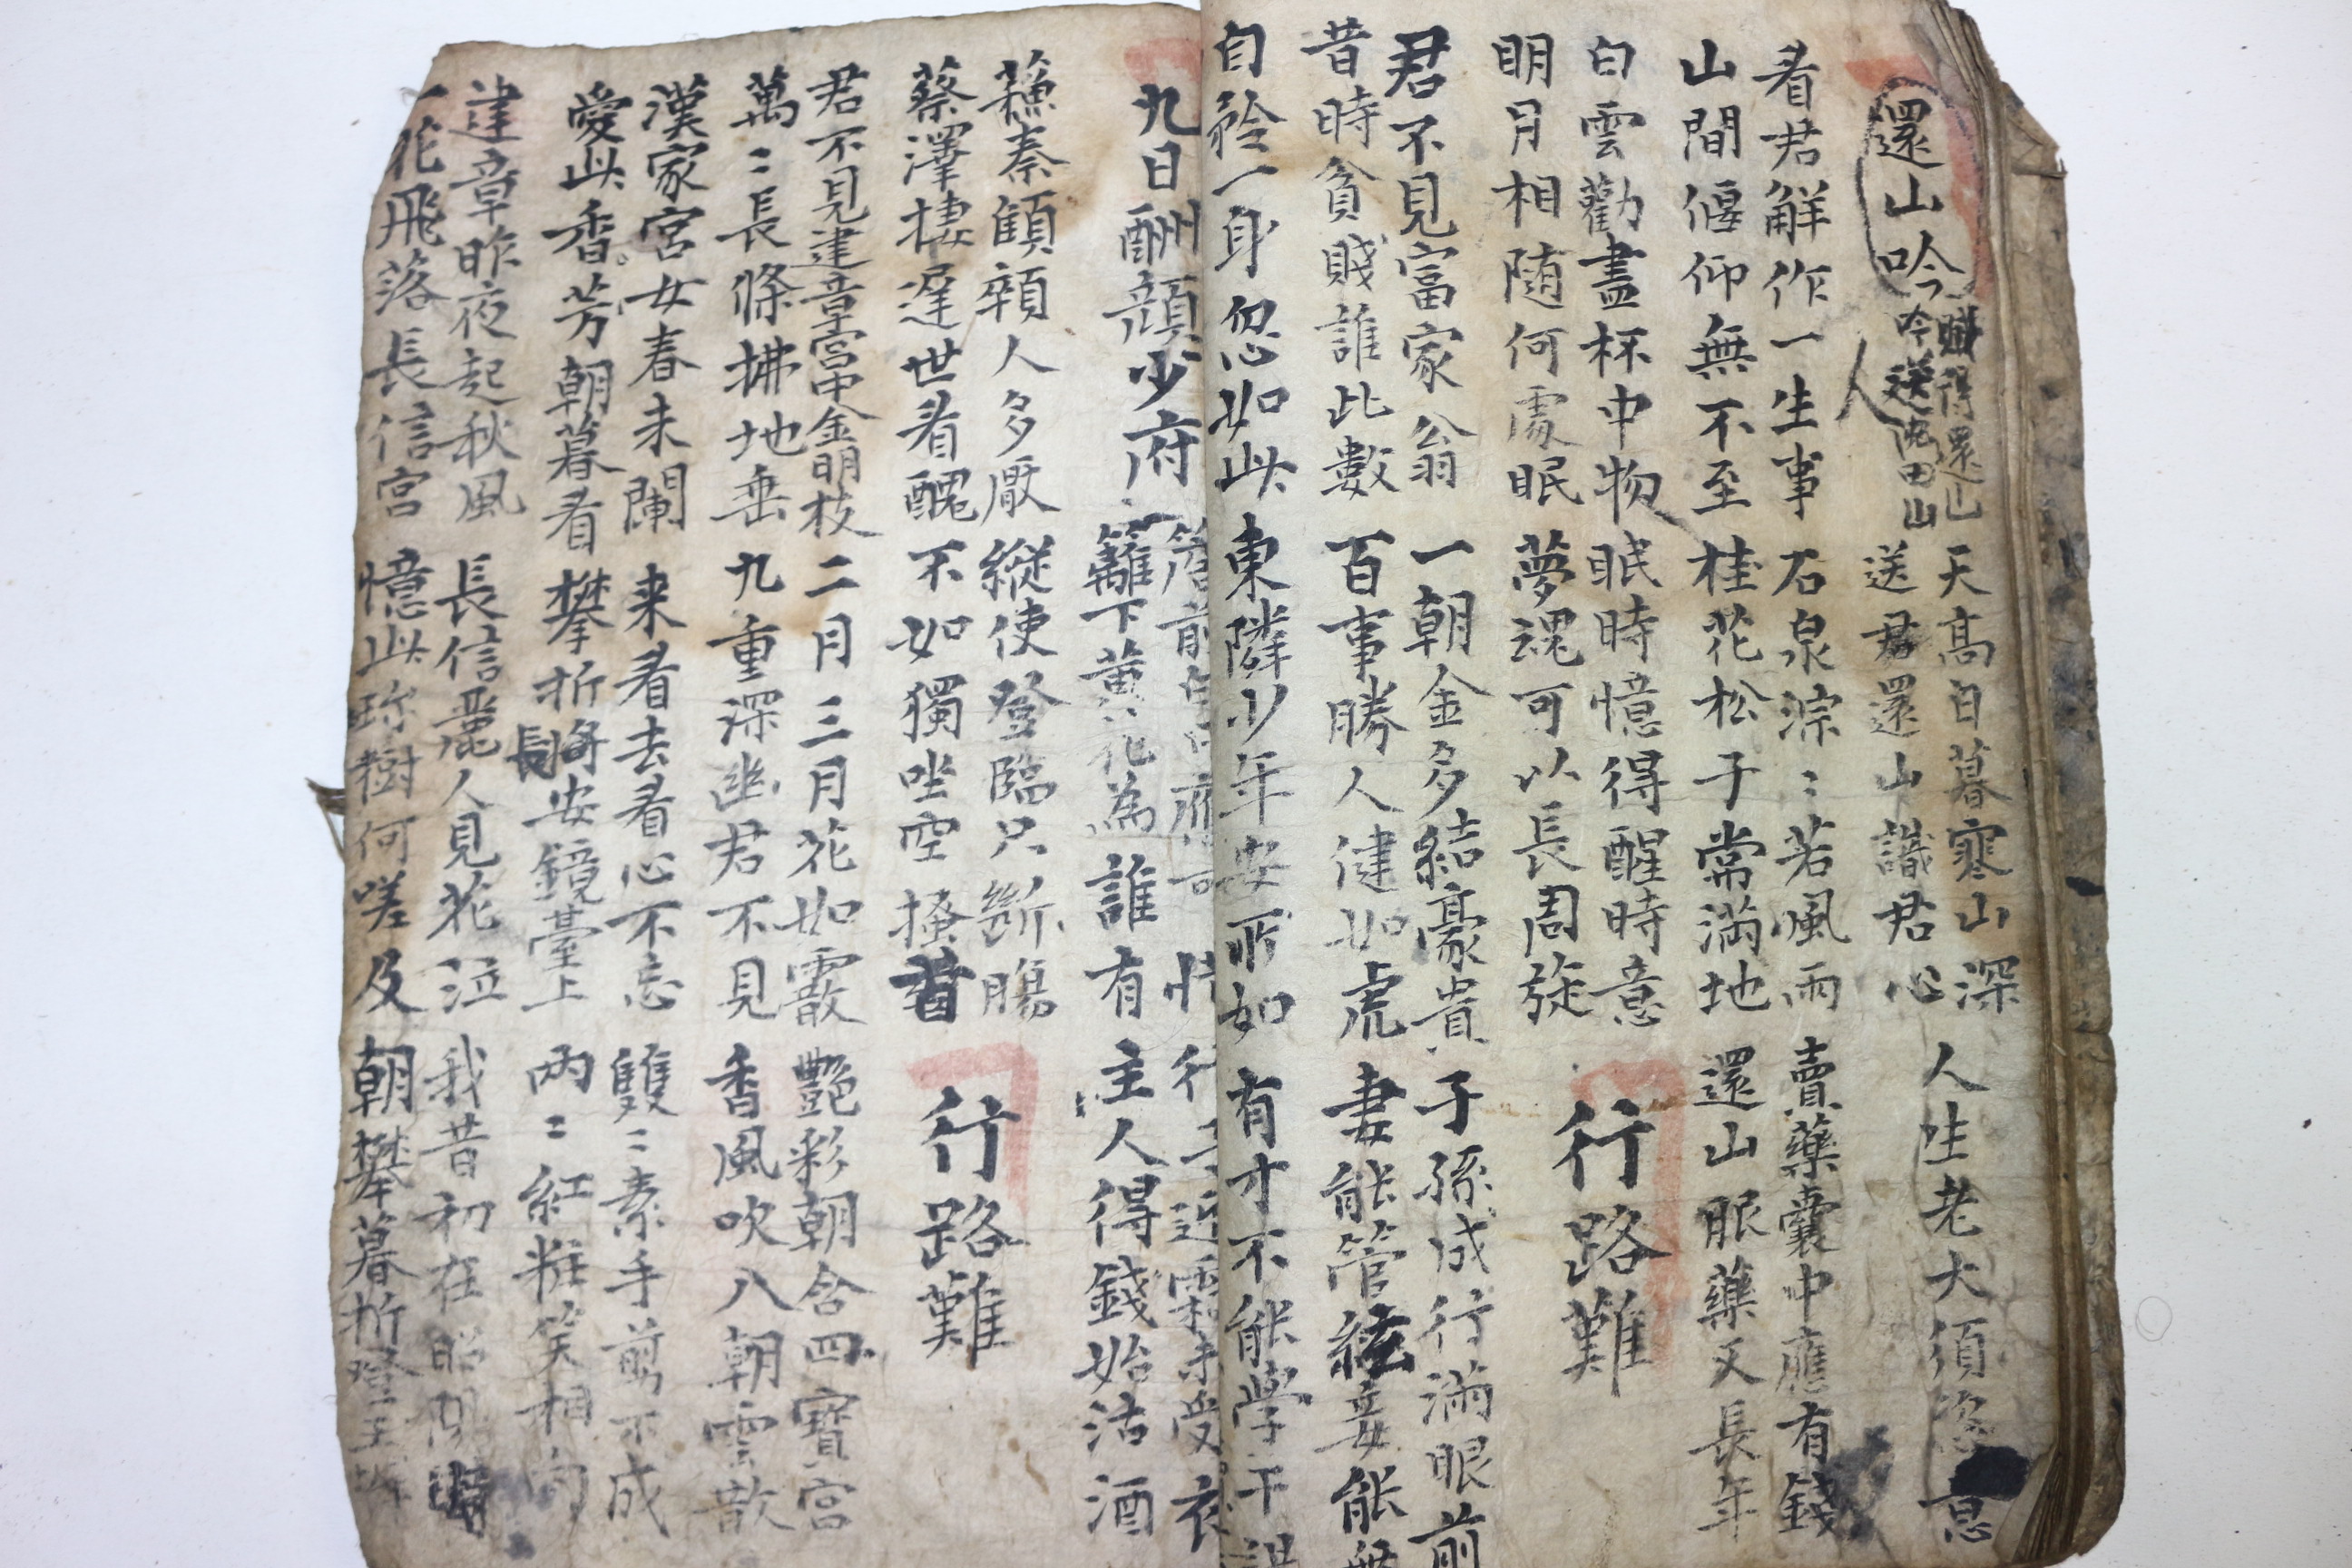 還山吟
賦得還山
吟送沈四山
人
天高日暮寒山深
送君還山識君心
人生老大須恣意
看君解作一生事
山間偃仰無不至
石泉淙〻若風雨
桂花松子常滿地
賣藥囊中應有錢
還山服藥又長年
白雲勸盡杯中物
明月相随何處眠
眠時憶得醒時意
夢魂可以長周旋
行路難
君不見富家翁
昔時貧賤誰比數
一朝金多結豪貴
百事勝人健如虎
子孫成行滿眼前
妻能管絃妾能舞
自矜一身忽如此
東隣少年安所如
有才不能學干謁
九日酬顔少府
簷前白日應可惜
籬下黄花為誰有
行子迎霜未受衣
主人得錢始沽酒
蘓秦顦顇人多厭
蔡澤捿遲世看醜
縱使登臨只斷膓
不如獨坐空搔首
行路難
君不見建章宮中金明枝
萬〻長條拂地垂
二月三月花如霰
九重深幽君不見
艷彩朝含四寶宮
香風吹八朝雲散
漢家宮女春未闌
愛此香芳朝暮看
来看去看心不忘
攀折將安鏡臺上
長
雙〻素手剪不成
兩〻紅粧笑相向
建章昨夜起秋風
一花飛落長信宮
長信麗人見花泣
憶此珎樹何嗟及
我昔初在昭陽時
朝攀暮折登玉墀